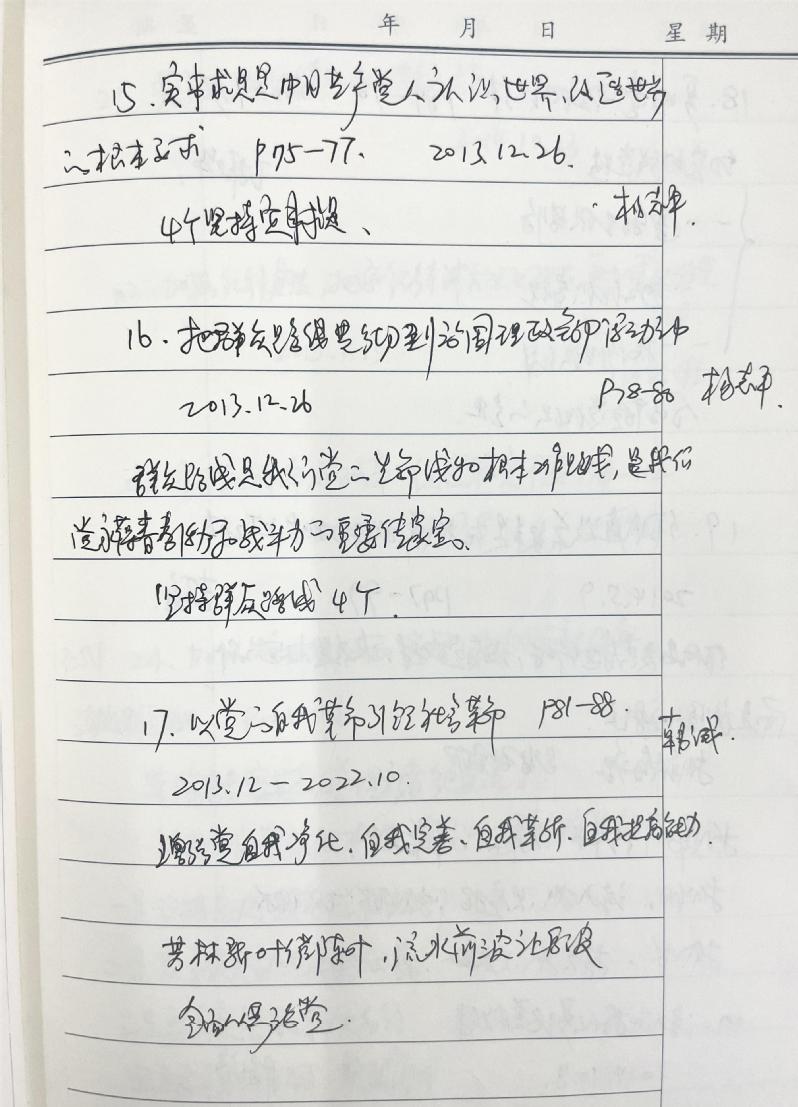 年 月 日 星期
15、实事求是是中国共产党人认识世界、改造世界
的根本要求 P75—77. 2013.12.26.
4个坚持实事求是、 杨志平.
16、把群众路线贯彻到治国理政全部活动中
2013.12.26 P78-80 杨志平.
群众路线是我们党的生命线和根本工作路线，是我们
党永葆青春活力和战斗力的重要传家宝。
坚持群众路线 4个.
17、以党的自我革命引领社会革命 P81-88.
2013.12—2022.10.
增强党自我净化、自我完善、自我革新、自我提高能力.
芳林新叶催陈叶，流水前波让后波
全面从严治党.